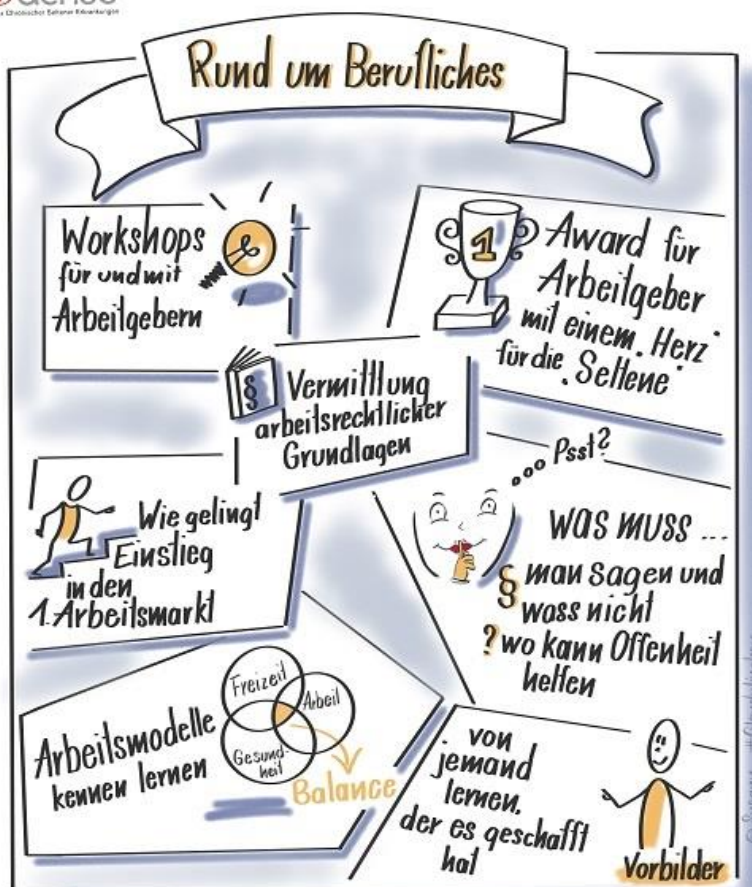 Chronischer Seltener Erkrankungen
Rund um Berufliches
Workshops
für und mit
Arbeitgebern
1
Award für
Arbeitgeber
mit einem "Herz"
für die "Seltene"
§
Vermittlung
arbeitsrechtlicher
Grundlagen
Wie gelingt
Einstieg
in den
1. Arbeitsmarkt
Psst?
WAS MUSS ...
§ man sagen und
wass nicht
? wo kann Offenheit
helfen
Arbeitsmodelle
kennen lernen
Freizeit
Arbeit
Gesund-
heit
Balance
von
jemand
lernen,
der es geschafft
hat
Vorbilder